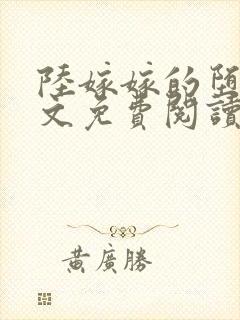 陸嫁嫁的墮
文免費閱讀
黃廣勝